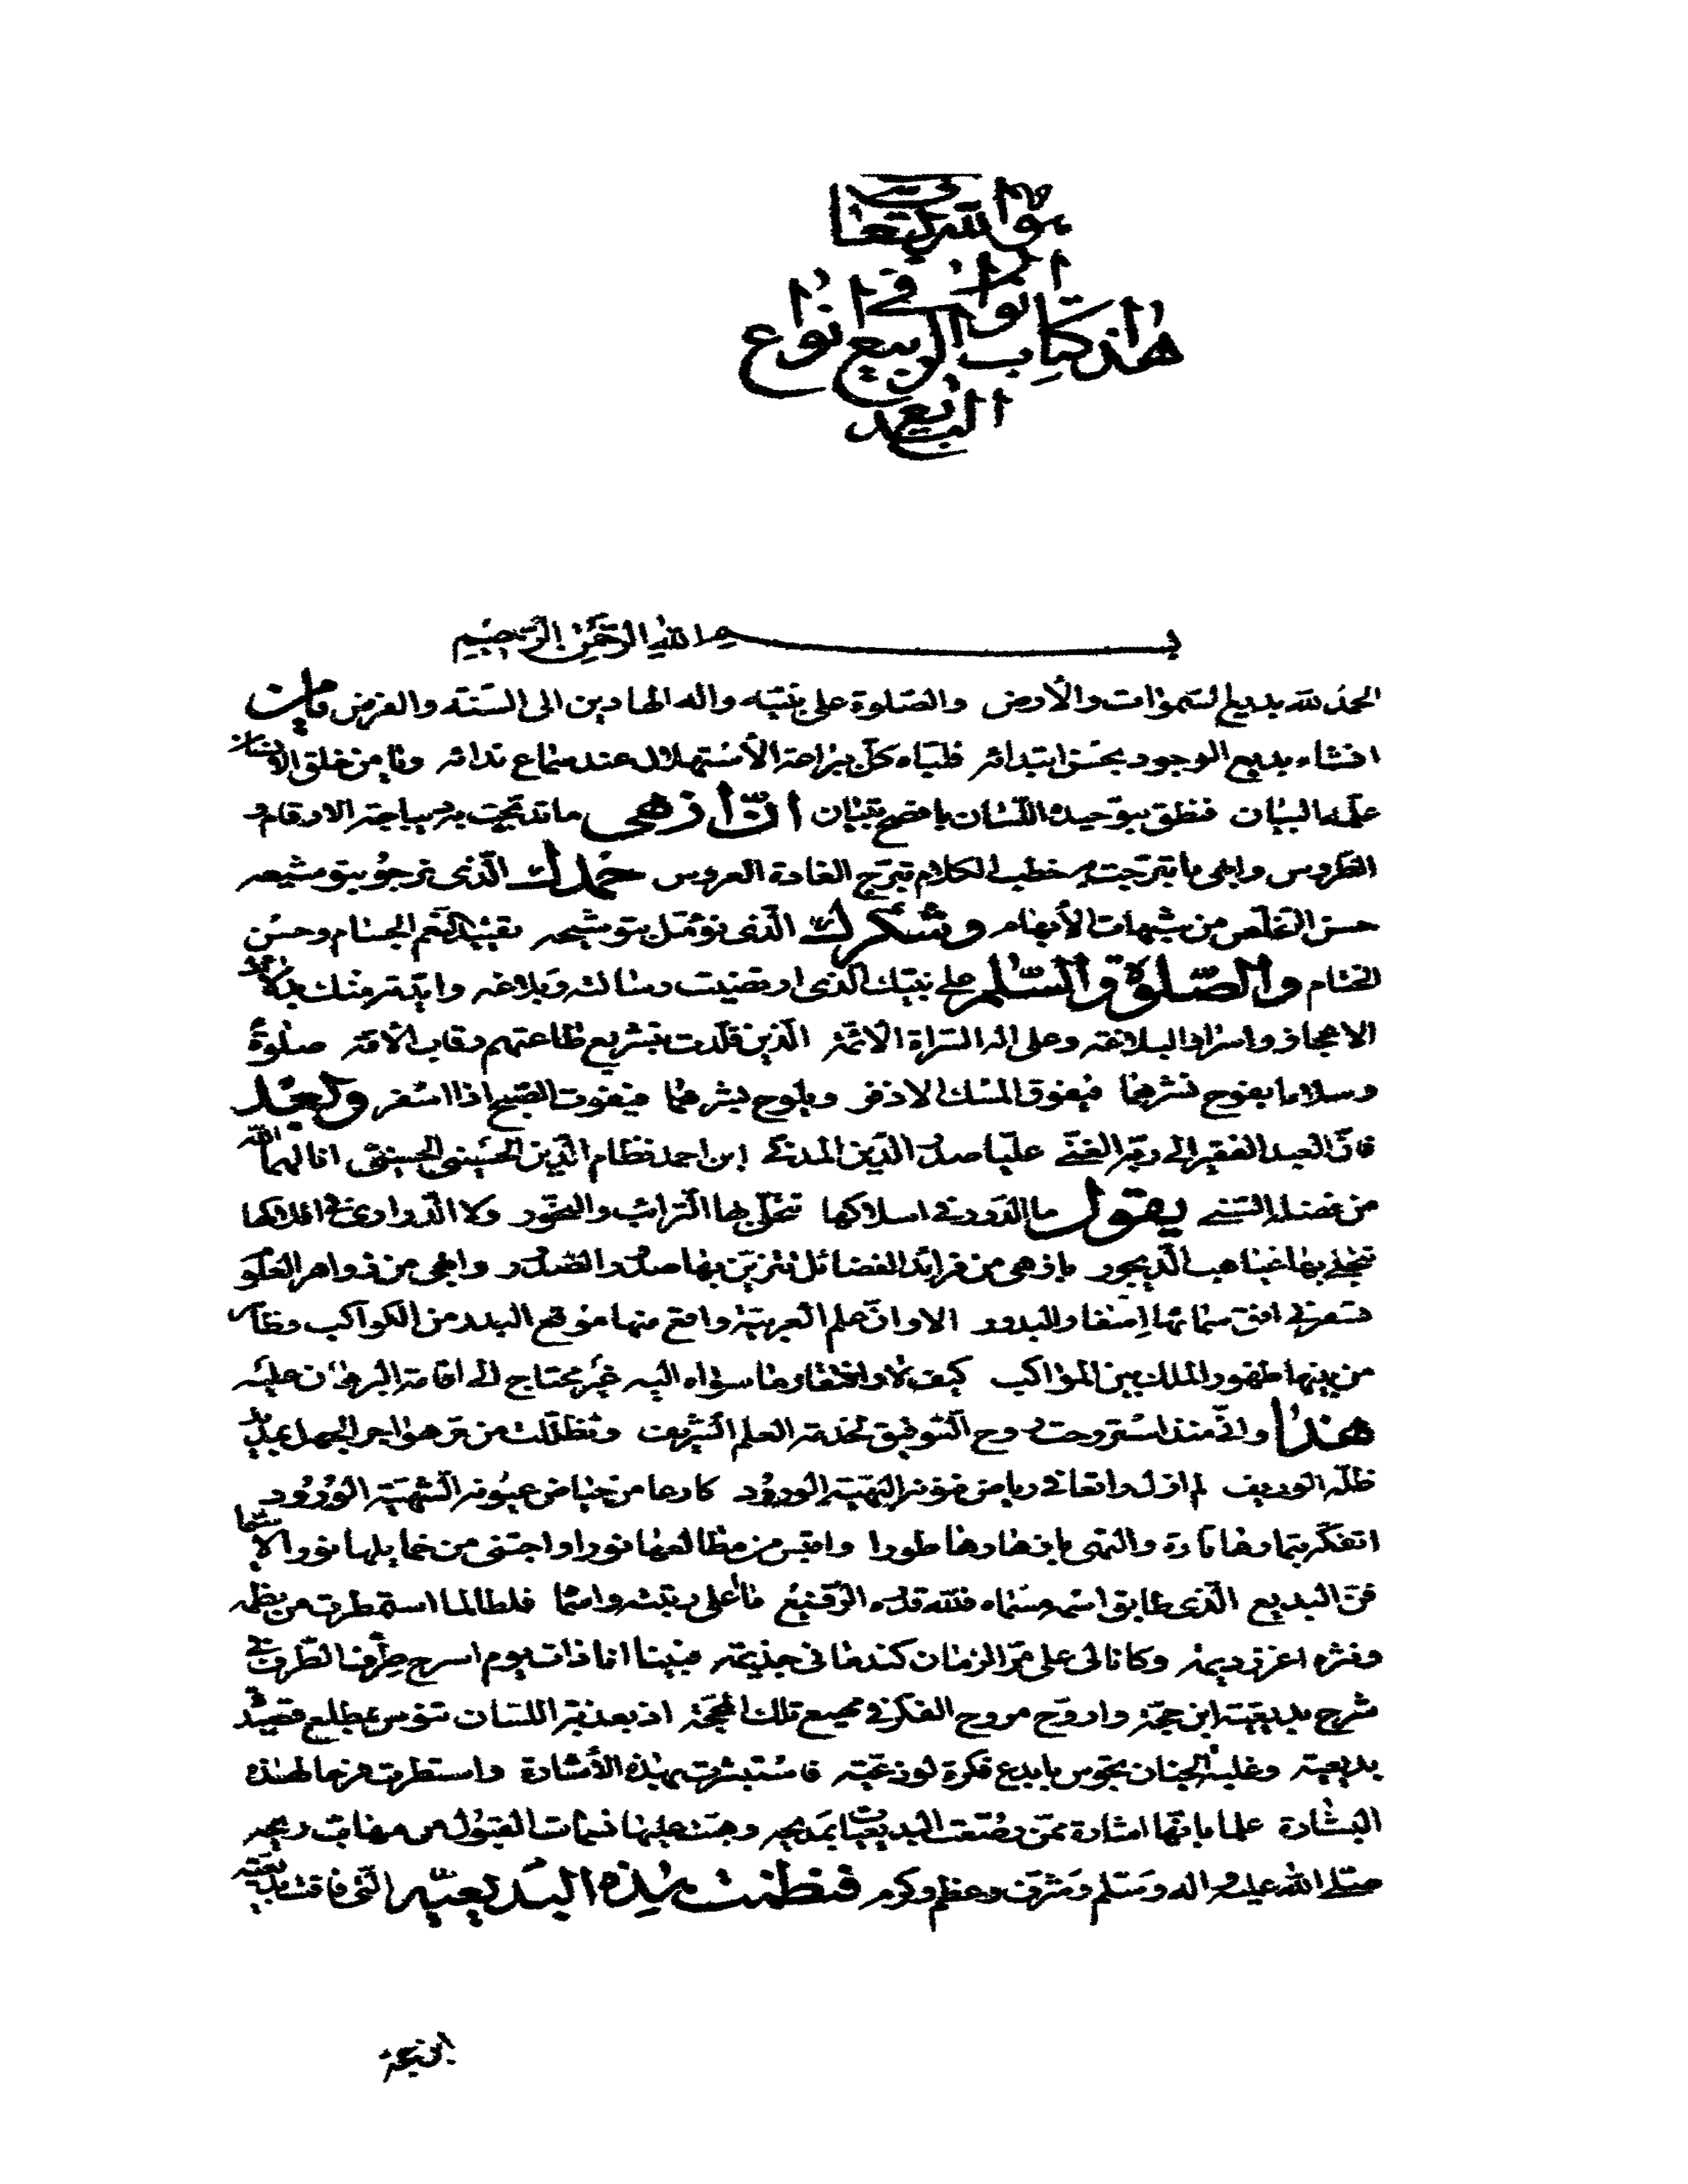 هو الله تعالى
هذا كتاب انوار الربيع في انواع
البديع
بسم الله الرحمن الرحيم
الحمد لله بديع السموات والأرض والصلوة على نبيّه واله الهادين الى السنّة والفرض يا من
انشاء بديع الوجود بحسن ابتدائه فلبّاه كلّ ببراعة الأستهلال عند سماع ندائه ويا من خلق الانسان
علّمه البيان فنطق بتوحيده اللسان بافصح تبيان انّ ازهى ما تدبّجت به ديباجة الارقام و
الطّروس وابهى ما تبرّجت به خطب الكلام تبرّج الغادة العروس حمدك الّذى نرجو بتوشيعه
حسن التخلّص من شبهات الأبهام وشكرك الّذى نؤمّل بتوشيحه تقييد النّعم الجسام وحسن
الختام والصّلوة والسّلم على نبيّك الّذى ارتضيت رسالته وبلاغه وايّدته منك بدلائل
الاعجاز واسرار البلاغة وعلى اله السّراة الائمّة الّذين قلّدت بتشريع طاعتهم رقاب الأمّة صلوة
وسلاما يفوح نشرهما فيفوق المسك الاذفر ويلوح بشرهما فيفوت الصّبح اذا اسفر وبعد
فانّ العبد الفقير الى ربّه الغنّى عليّا صدر الدّين المدنّى ابن احمد نظام الدّين الحسينى الحسينّى انالهما الله
من فضله السّنى يقول ما الدّرر فى اسلاكها تتحلّى بها الترائب والنحّور ولا الدّرارى فى افلاكها
تنجلى بها غياهب الدّيجور بازهى من فرائد الفضائل تتزيّن بها صدور الصّدور وابهى من زواهر العلوم
تسفر فى افق سمائها اسفار البدور الا وانّ علم العربيّة واقع منها موقع البدر من الكواكب وظاهر
من بينها ظهور الملك بين المواكب كيف لا وافتقار ما سواه اليه غير محتاج الى اقامة البرهان عليه
هذا وانّى منذ استروحت روح التّوفيق لخدمة العلم الشّريف وتظلّلت من حرّ هواجر الجهل بمديد
ظلّه الوريف لم ازل راتعا فى رياض فنونه البهيّة الورود كارعا من حياض عيونه الشّهيّة الورود
اتفكّه بثمارها تارة والتهى بازهارها طورا واقتبس من مطالعها نورا واجتنى من خمايلها نورا لا سيّما
فنّ البديع الّذى طابق اسمه مسمّاه فلله قدره الرّفيع ما أعلى رتبته واسما فلطالما استمطرت من نظمه
ونثره اعزز ديمة وكانا لى على مرّ الزمان كندمانى جذيمة فبينا انا ذات يوم اسرح طرف الطّرف فى
شرح بديعيّة ابن حجّة واروّح روح الفكر فى مهيع تلك المحجّة اذ بعذبة اللسان تنوس بمطلع قصيدة
بديعيّة وغلبة الجنان تجوس بابدع فكرة لوذعيّة فاستبشرت بهذه الأشارة واستطرت فرحا لهذه
البشارة علما بانّها اشارة ممّن وضعت البديعيّات بمديحه وهبّت عليها نسمات القبول من مهابّ ريحه
صلى الله عليه واله وسلم وشرّف وعظم وكرم فنظمت هذه البديعيّه الّتى فاقت بديعيّة
ابن حجة